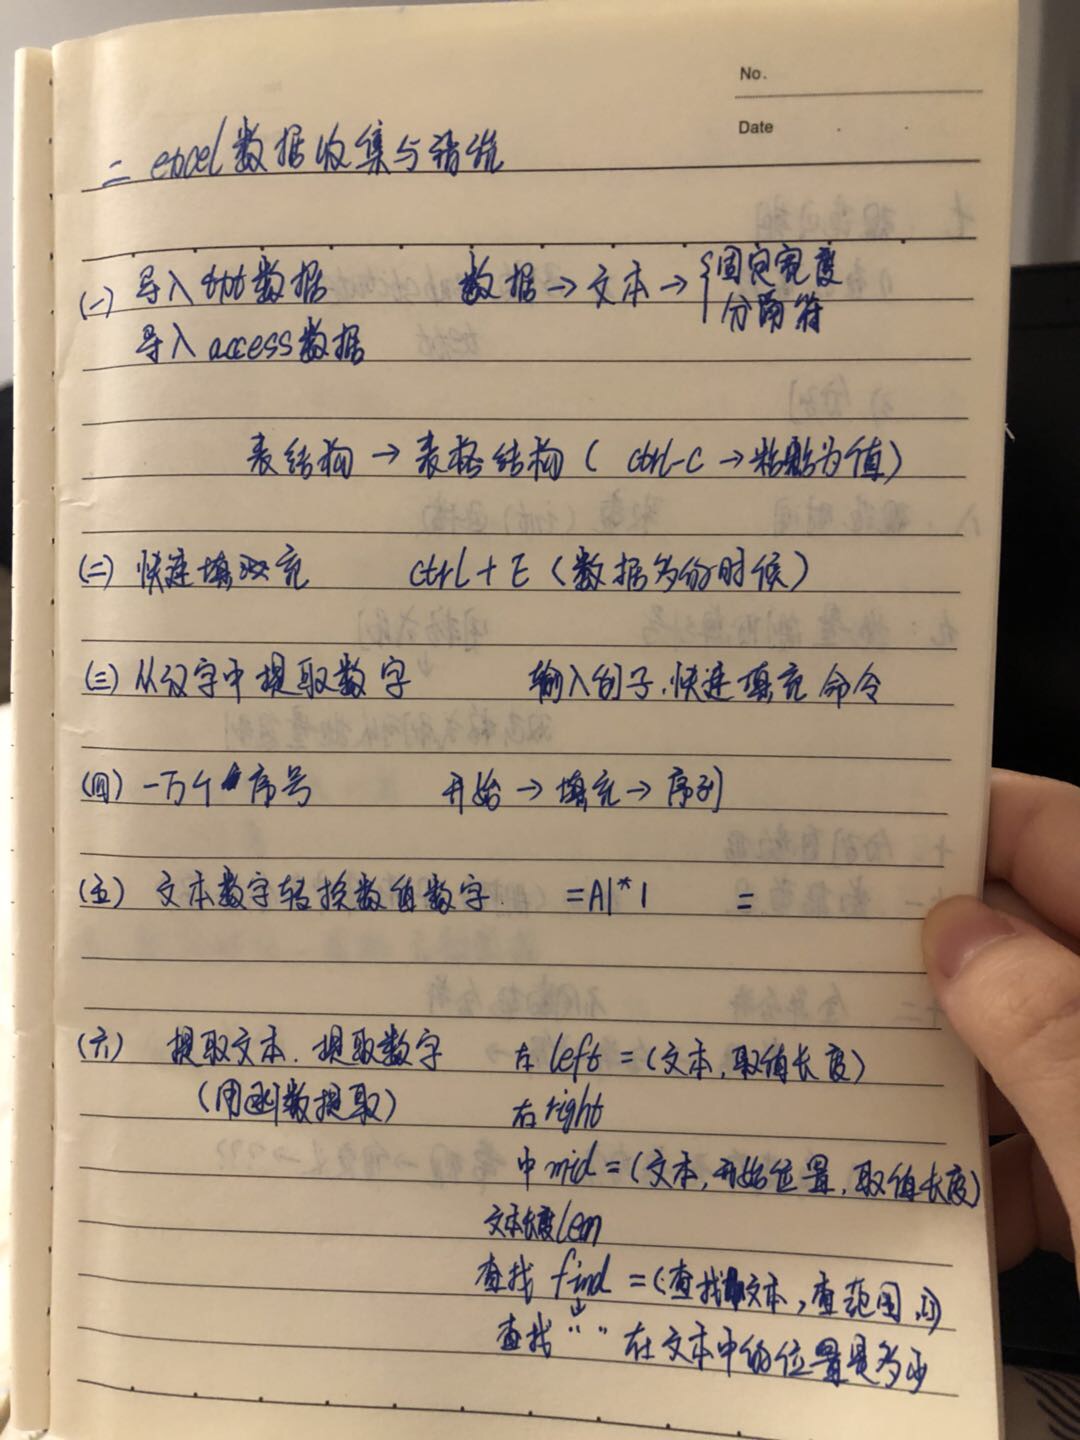 No.
Date
二 excel数据收集与清洗
(一) 导入txt数据 数据→文本→{固定宽度
分隔符
导入access数据
表结构→表格结构( ctrl-C→粘贴为值)
(二) 快速填充 ctrl+E(数据多的时候)
(三) 从汉字中提取数字 输入例子.快速填充 命令
(四) 一万个序号 开始→填充→序列
(五) 文本数字转换数值数字. =A1*1 =
(六) 提取文本.提取数字 左 left=(文本,取值长度)
(用函数提取) 右 right
中 mid=(文本,开始位置,取值长度)
文本长度len
查找 find=(查找文本,查范围,1)
↓
查找 "" 在文本中的位置是多少